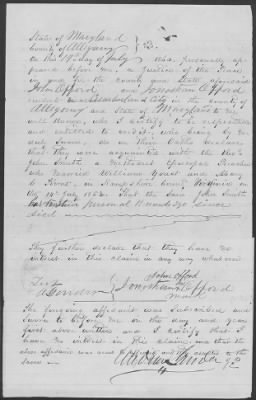 State of Maryland
County of Allegany } SS.
On this 19th day of July personally ap-
peared before me, a Justice of the Peace
in and for the County and State aforesaid
John Offord and Jonathan Offord
resident Cumberland City in the County of
Allegany and State of Maryland to me
well known, who I certify to be respectable
and entitled to credit, who being by me
duly sworn, on their oaths declare
that they were acquainted with the Revd
John Smith a Methodist Episcopal Preacher
who Married William Yount and Mary
E. in Hampshire County Virginia on
the 14 1852 That the said John Smith
has personal Knowledge since
died
They further declare that they have no
interest in this claim in any way whatever
John Offord
Jonathan Offord
mark
The foregoing affidavit was Subscribed and
Sworn to before me on the day and year
first above written and I certify that I
have no interest in this claim and that the
above affidavit was read & to the
same